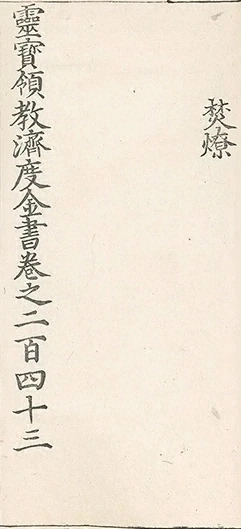 焚燎
靈寶領教濟度金書卷之二百四十三